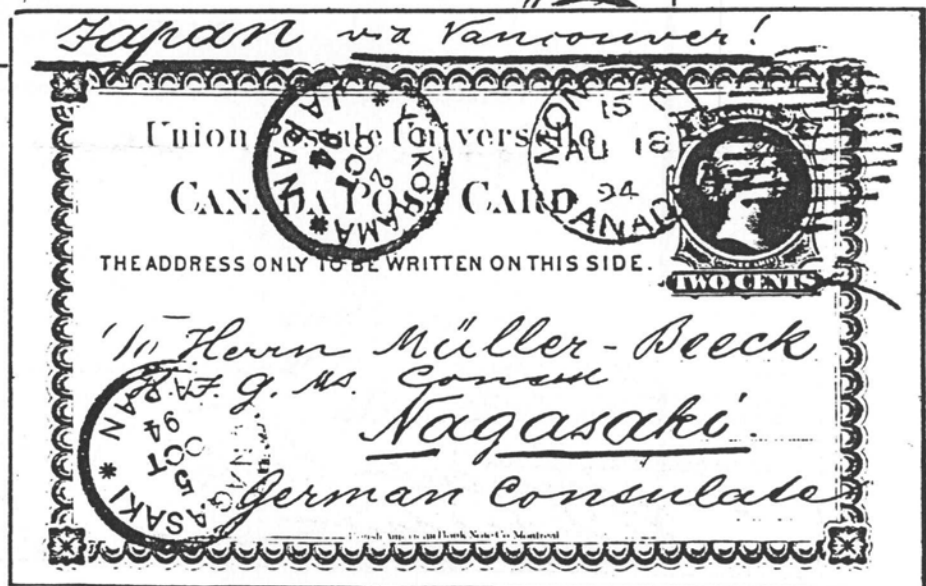 Japan via Vancouver!
Union Postale Universelle
CANADA POST CARD
THE ADDRESS ONLY TO BE WRITTEN ON THIS SIDE.
TWO CENTS
YOKOHAMA
2
OCT
94
JAPAN
15
AU 18
94
CANADA
Herrn Müller-Beeck
g. Ms. Consul
Nagasaki.
German Consulate
NAGASAKI
5
OCT
94
JAPAN
American Bank Note Co. Montreal